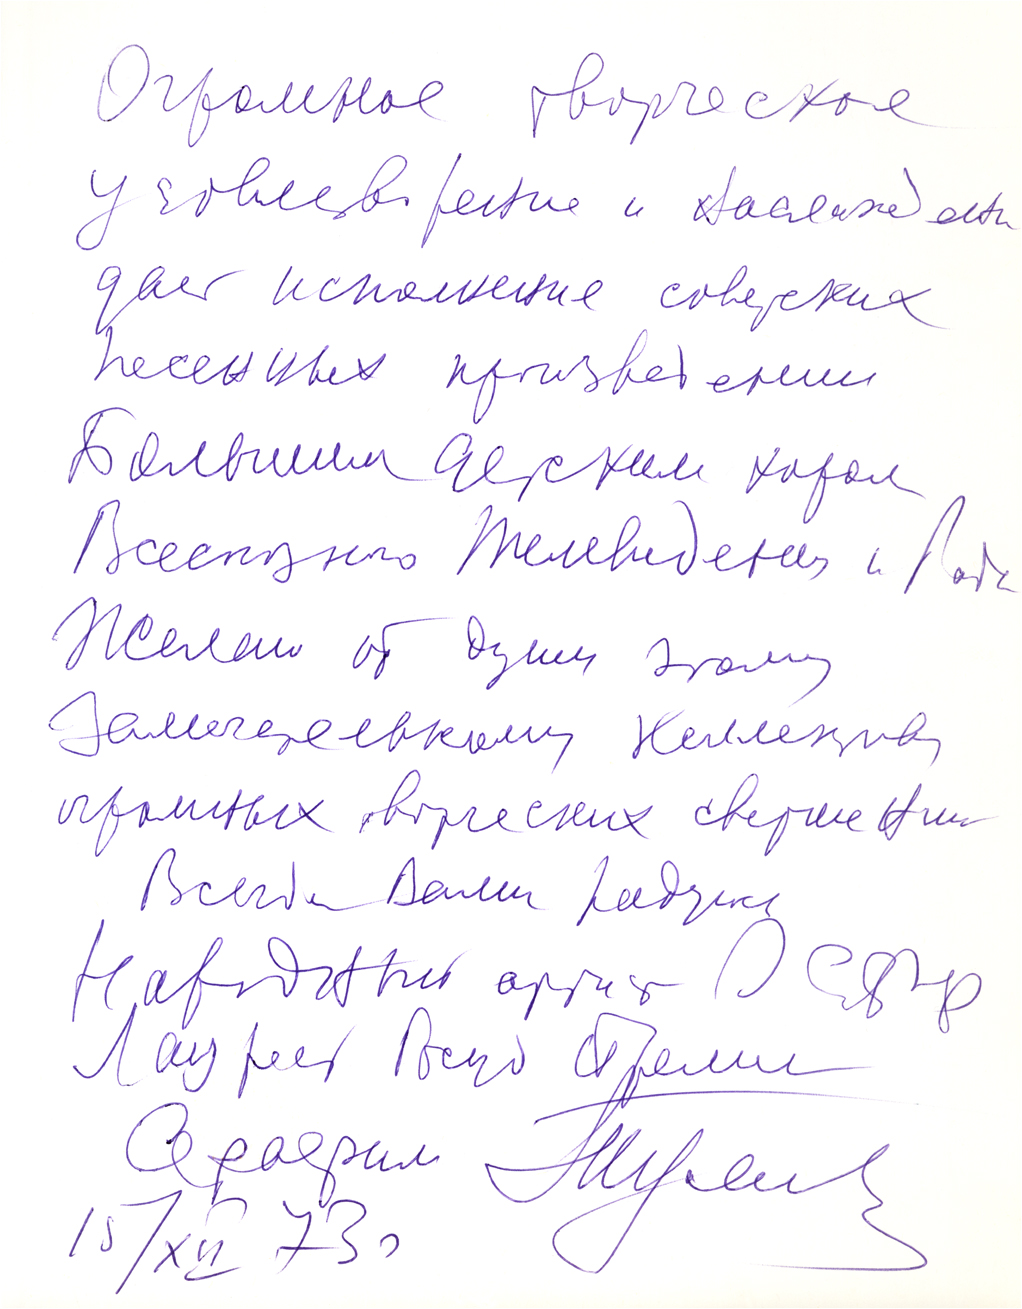 Огромное творческое
удовлетворение и наслаждени
дает исполнение советских
песенных произведении
Большим Детским хором
Всесоюзного Телевидения и Ради
Желаю от души этому
Замечательному Коллективу
огромных творческих свершении
Всегда Вами
Народный артист РСФСР
Лауреат Госуд Премии
Серафим Туликов
15/XII 73 г